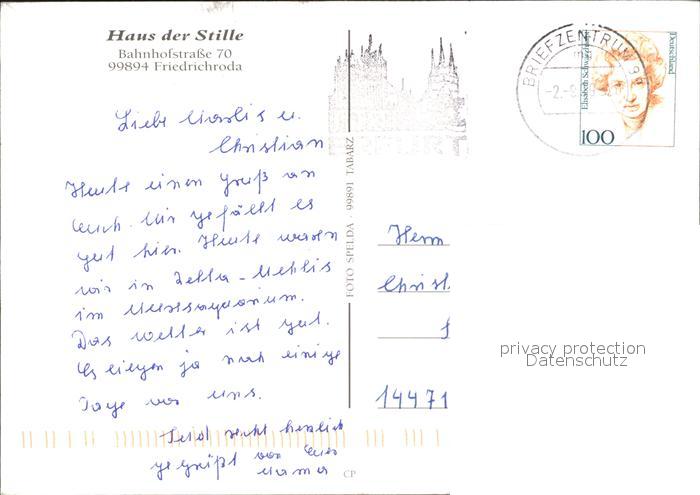 Haus der Stille
Bahnhofstraße 70
99894 Friedrichroda
Liebe Marlis u.
Christian
Heute einen Gruß an
Euch. Mir gefällt es
gut hier. Heute waren
wir in Zella-Mehlis
im Meeresaquarium.
Das Wetter ist gut.
Es liegen ja noch einige
Tage vor uns.
Seid recht herzlich
gegrüßt von Eurer
Mama
FOTO SPELDA · 99891 TABARZ
CP
ERFURT
BRIEFZENTRUM 99
Elisabeth Schwarzhaupt
Deutschland
100
Herrn
Christ
14471
privacy protection
Datenschutz